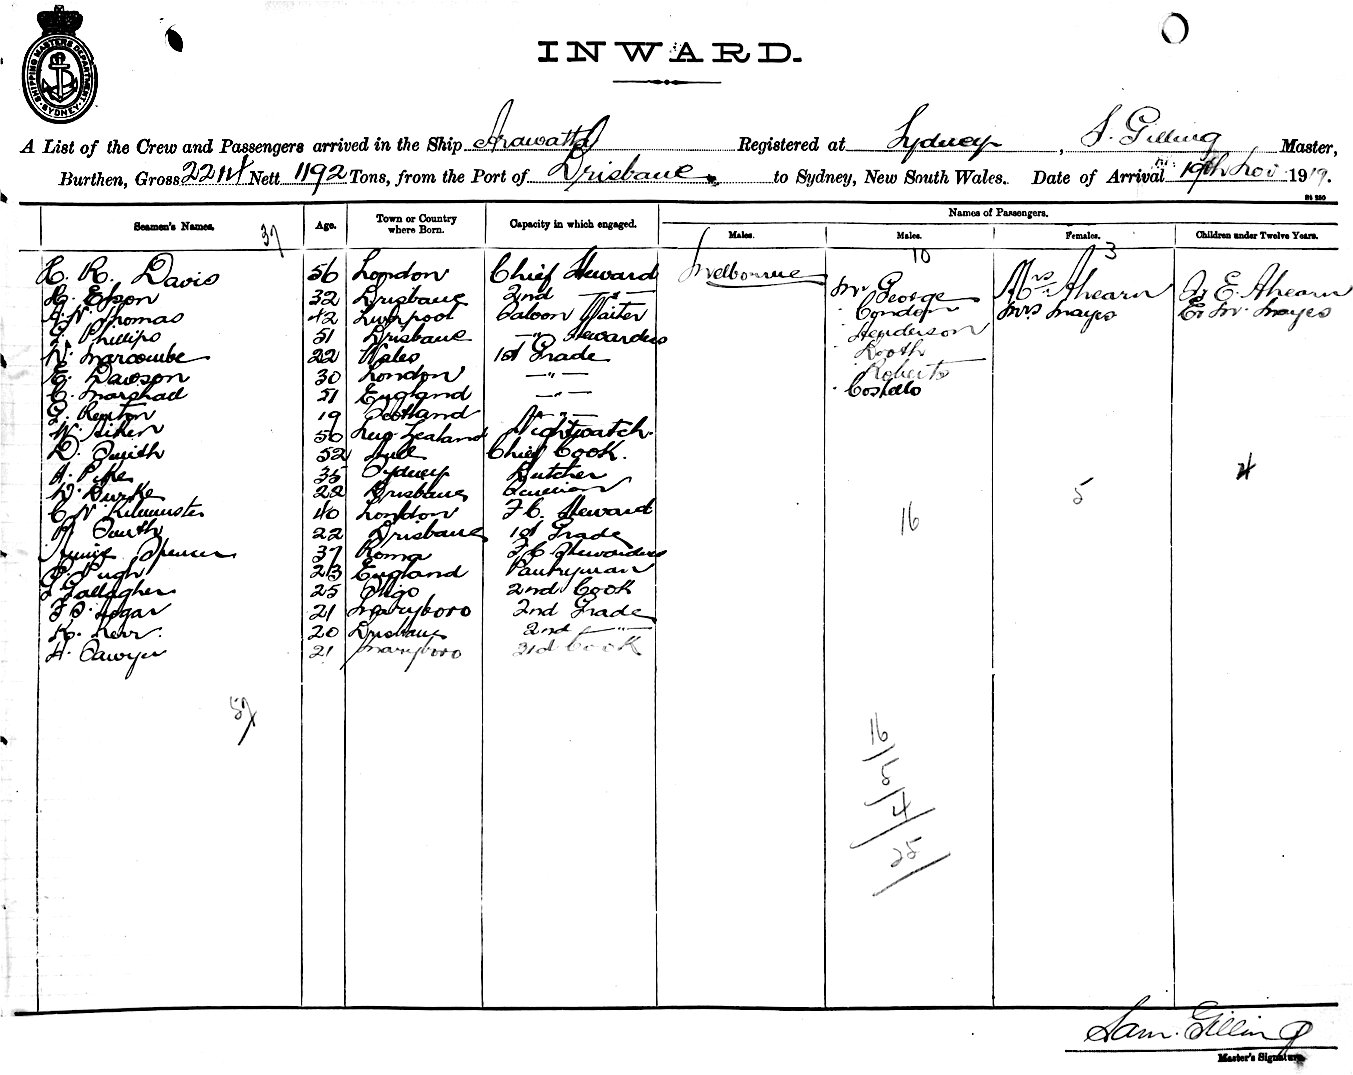 SHIPPING MASTERS DEPARTMENT SYDNEY
INWARD.
A List of the Crew and Passengers arrived in the Ship Arawatta Registered at Sydney, S. Gilling Master,
Burthen, Gross 2214 Nett 1192 Tons, from the Port of Brisbane to Sydney, New South Wales. Date of Arrival 19th Nov 1919.
Seamen's Names. Age. Town or Country where Born. Capacity in which engaged. Names of Passengers.
Males. Males. Females. Children under Twelve Years.
37 10 3
H. R. Davis 56 London Chief Steward Melbourne Mr George Mrs Ahearn E Ahearn
32 Brisbane 2nd -"- Condon Mrs Mayes E. M. Mayes
Thomas 42 Liverpool Saloon Waiter Henderson
Phillips 51 Brisbane -"- Stewardess Booth
W. Marcombe 22 Wales 1st Grade Roberts
Dawson 30 London -"- Costello
C. Marshad 51 England -"-
Renton 19 Scotland -"-
W. Aitken 50 New Zealand Nightwatch.
D. Smith 52 Hull Chief Cook.
A. Pike 35 Sydney Butcher
Burke 22 Brisbane
C W Kilminster 40 London F. C. Steward
Smith 22 Brisbane 1st Grade
Spencer 37 Roma F. C. Stewardess
Pugh 23 England Pantryman
Gallagher 25 Sligo 2nd Cook
Hogan 21 Maryboro 2nd Grade
K. Kerr 20 Brisbane 2nd -"-
H. Sawyer 21 Maryboro 3rd Cook
16 5 4
57
16/5/4/25
Sam. Gilling
Master's Signature.